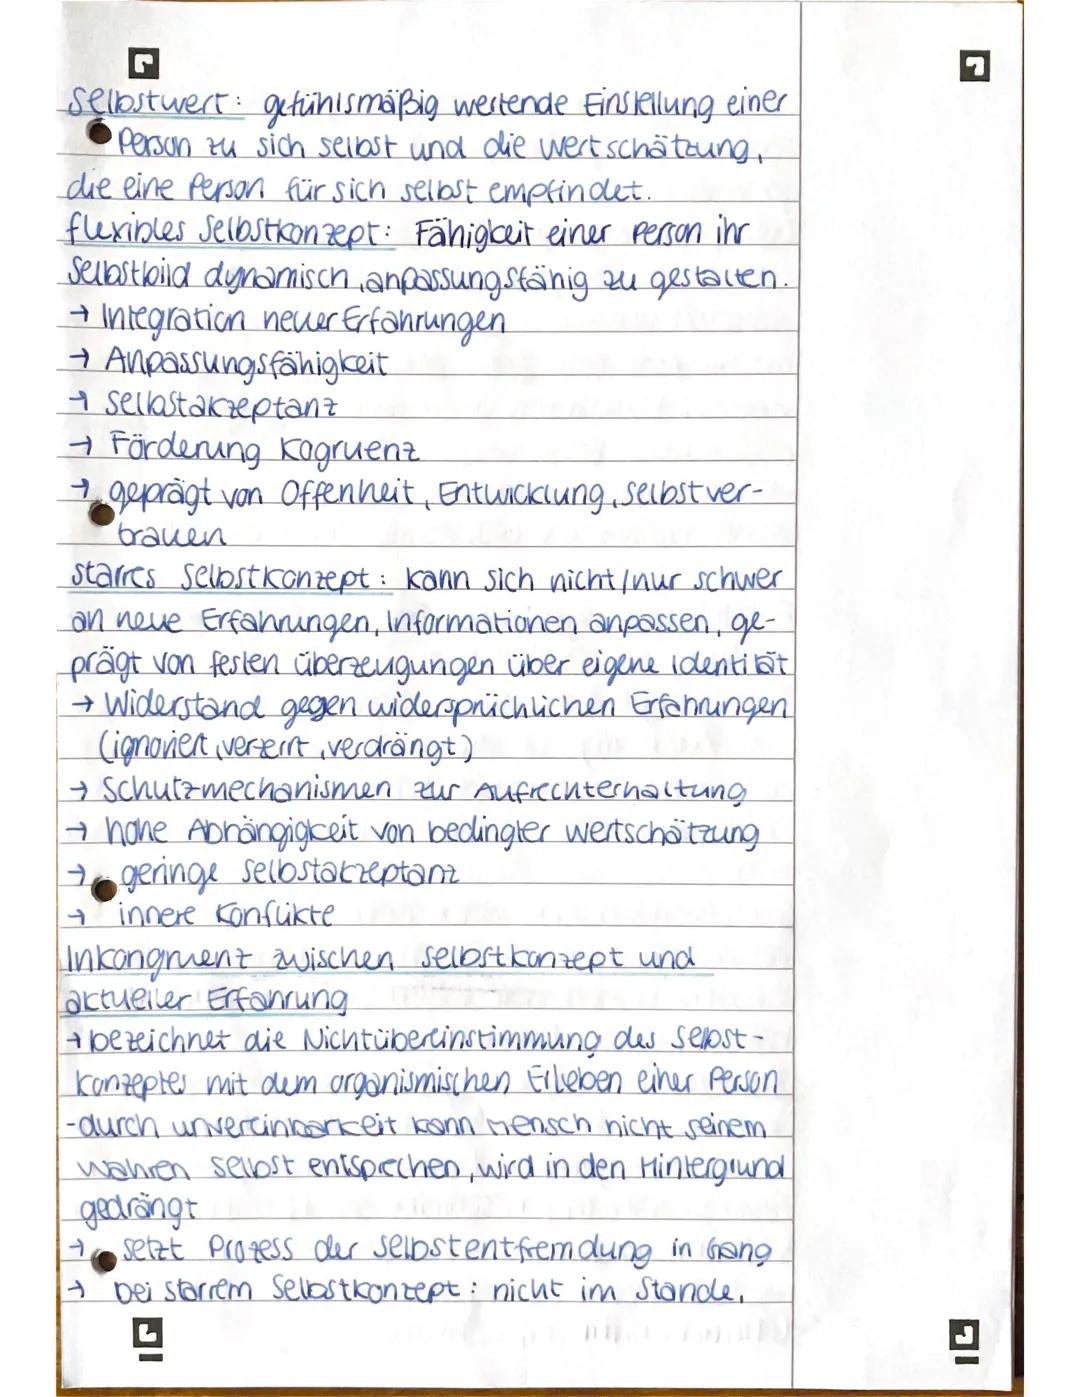 Selbstwert: gefühlsmäßig wertende Einstellung einer
Person zu sich selbst und die Wertschätzung,
die eine Person für sich selbst empfindet.
flexibles Selbstkonzept: Fähigkeit einer Person ihr
Selbstbild dynamisch, anpassungsfähig zu gestalten.
→ Integration neuer Erfahrungen
→ Anpassungsfähigkeit
→ Selbstakzeptanz
→ Förderung Kogruenz
→ geprägt von Offenheit, Entwicklung, Selbstver-
trauen
starres Selbstkonzept: kann sich nicht/nur schwer
an neue Erfahrungen, Informationen anpassen, ge-
prägt von festen Überzeugungen über eigene Identität
→ Widerstand gegen widersprüchlichen Erfahrungen
(ignoriert, verzerrt, verdrängt)
→ Schutzmechanismen zur Aufrechterhaltung
→ hohe Abhängigkeit von bedingter Wertschätzung
→ geringe Selbstakzeptanz
→ innere Konflikte
Inkongruenz zwischen Selbstkonzept und
aktueller Erfahrung
→ bezeichnet die Nichtübereinstimmung des Selbst-
konzeptes mit dem organismischen Erleben einer Person
-durch Unvereinbarkeit kann Mensch nicht seinem
wahren Selbst entsprechen, wird in den Hintergrund
gedrängt
→ setzt Prozess der Selbstentfremdung in Gang
→ bei starrem Selbstkonzept: nicht im Stande,